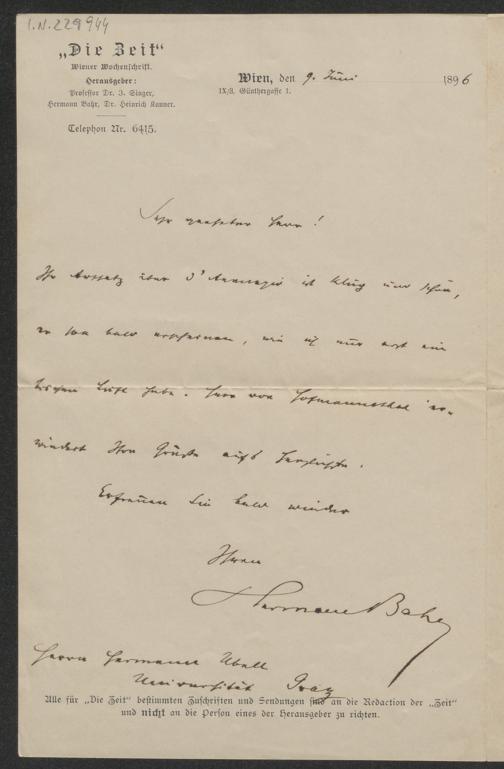 I.N. 229944
„Die Zeit“
Wiener Wochenschrift.
Herausgeber:
Professor Dr. I. Singer,
Hermann Bahr, Dr. Heinrich Kanner.
Telephon Nr. 6415.
Wien, den 9. Juni 1896
IX/3, Günthergasse 1.
Sehr geehrter Herr!
Ihr Aufsatz über d'Annunzio ist klug und schön,
er soll bald erscheinen, wie ich nur erst ein
bischen Luft habe. Herr von Hofmannsthal er-
widert Ihre Grüße aufs herzlichste.
Erfreuen Sie bald wieder
Ihren
Hermann Bahr
Herrn Hermann Ubell
Universität Graz
Alle für „Die Zeit“ bestimmten Zuschriften und Sendungen sind an die Redaction der „Zeit“
und nicht an die Person eines der Herausgeber zu richten.